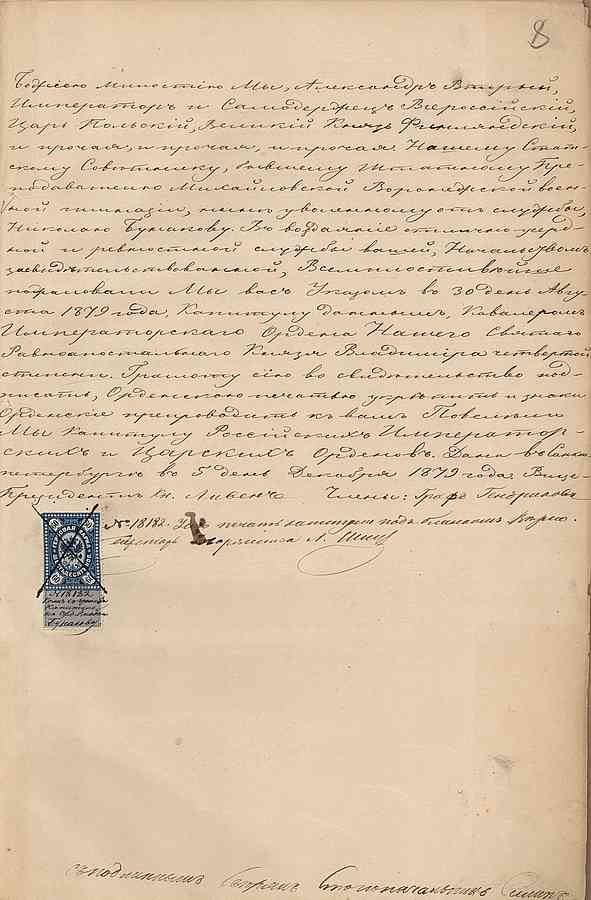 8
Божіею Милостію Мы, Александръ Вторый,
Императоръ и Самодержецъ Всероссійскій,
Царь Польскій, Великій Князь Финляндскій,
и прочая, и прочая, и прочая. Нашему Стат-
скому Совѣтнику, бывшему Штатному Пре-
подавателю Михайловской Воронежской воен-
ной гимназіи, нынѣ уволенному отъ службы,
Николаю Бунакову. Въ воздаяніе отлично-усерд-
ной и ревностной службы вашей, Начальствомъ
засвидѣтельствованной, Всемилостивѣйше
пожаловали Мы васъ Указомъ въ 30 день Авгу-
ста 1879 года, Капитулу даннымъ, Кавалеромъ
Императорскаго Ордена Нашего Святаго
Равноапостольнаго Князя Владиміра четвертой
степени. Грамоту сію во свидѣтельство под-
писать, Орденскою печатью укрѣпить и знаки
Орденскіе препроводить къ вамъ Повелѣли
Мы Капитулу Россійскихъ Император-
скихъ и Царскихъ Орденовъ. Дана въ Санкт-
петербургѣ въ 5 день Декабря 1879 года. Вице-
Президентъ кн. Ливенъ Члены: Графъ Гендриковъ
№ 18182. печать подъ
№ 18182
Бунакову
Съ подлиннымъ Столоначальникъ